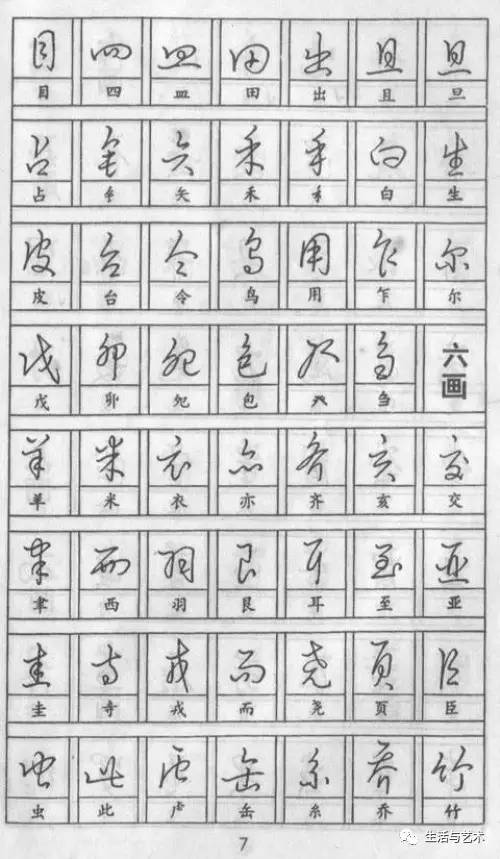 目 四 皿 田 出 且 旦
目 四 皿 田 出 且 旦
占 矢 禾 白 生
占 矢 禾 白 生
皮 台 令 鸟 用 乍 尔
皮 台 令 鸟 用 乍 尔
戊 卯 包 癶 刍 六画
戊 卯 包 癶 刍
羊 米 衣 亦 齐 亥 交
羊 米 衣 亦 齐 亥 交
聿 西 羽 艮 耳 至 亚
聿 西 羽 艮 耳 至 亚
圭 寺 戎 而 尧 页 臣
圭 寺 戎 而 尧 页 臣
虫 此 虍 缶 糸 乔 竹
虫 此 虍 缶 糸 乔 竹
7
生活与艺术